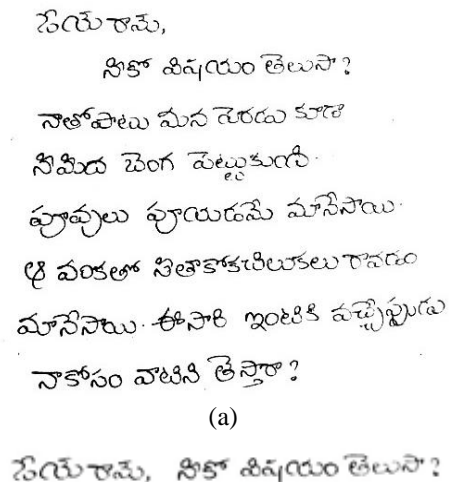 ప్రియమైన రామ్,
నీకో విషయం తెలుసా?
నాతోపాటు మన పెరడు కూడా
నీమీద బెంగ పెట్టుకుంది.
పూవులు పూయడమే మానేసాయి.
ఆ వంకతో సీతాకోకచిలుకలు రావడం
మానేసాయి. ఈసారి ఇంటికి వచ్చేప్పుడు
నాకోసం వాటిని తెస్తారా?
(a)
నీకో విషయం తెలుసా?